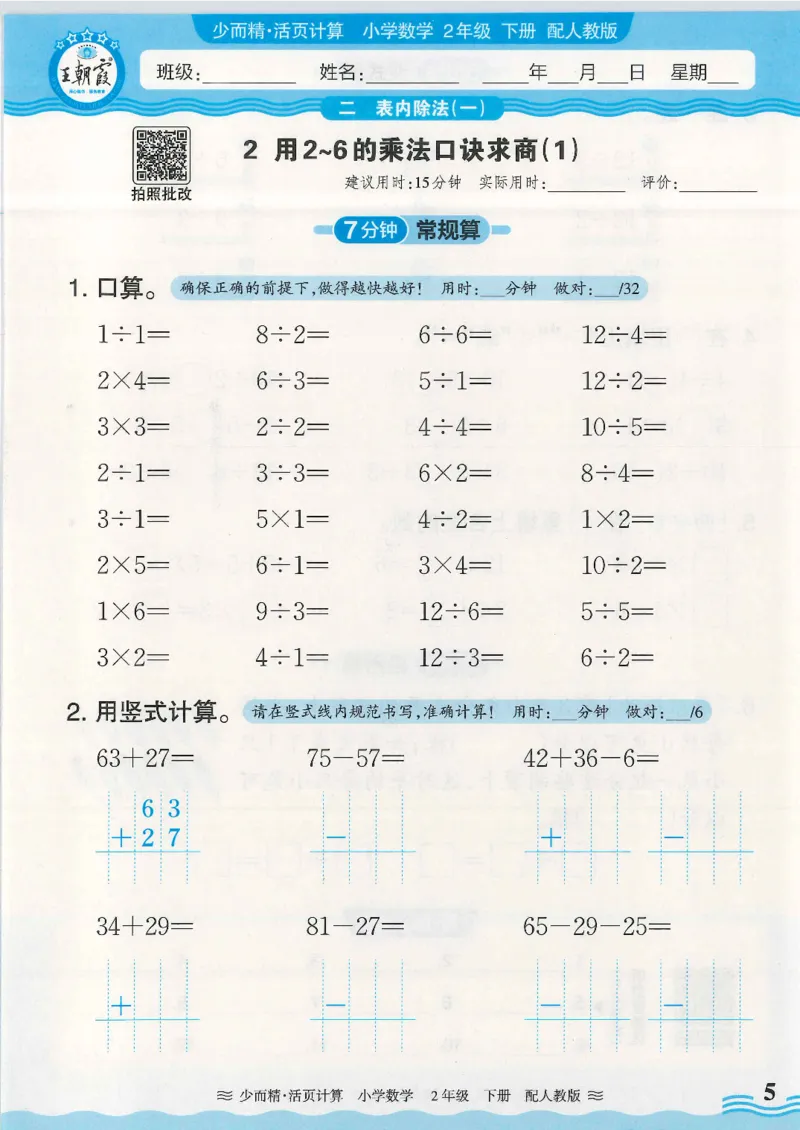 少而精·活页计算 小学数学 2年级 下册 配人教版
王朝霞
班级:________ 姓名:________ ____年___月___日 星期___
二 表内除法(一)
2 用2~6的乘法口诀求商(1)
拍照批改
建议用时:15分钟 实际用时:________ 评价:________
7分钟 常规算
1. 口算。 确保正确的前提下,做得越快越好! 用时:___分钟 做对:___/32
1÷1= 8÷2= 6÷6= 12÷4=
2×4= 6÷3= 5÷1= 12÷2=
3×3= 2÷2= 4÷4= 10÷5=
2÷1= 3÷3= 6×2= 8÷4=
3÷1= 5×1= 4÷2= 1×2=
2×5= 6÷1= 3×4= 10÷2=
1×6= 9÷3= 12÷6= 5÷5=
3×2= 4÷1= 12÷3= 6÷2=
2. 用竖式计算。 请在竖式线内规范书写,准确计算! 用时:___分钟 做对:___/6
63+27= 75-57= 42+36-6=
6 3
+ 2 7 - + -
34+29= 81-27= 65-29-25=
+ - - -
少而精·活页计算 小学数学 2年级 下册 配人教版
5